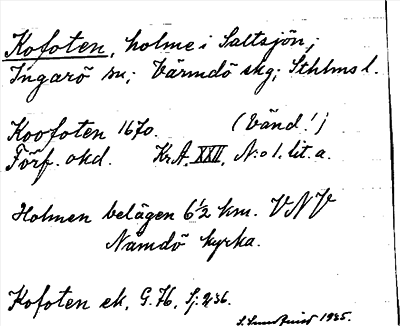 Kofoten, holme i Saltsjön,;
Ingarö sn; Värmdö skg; Sthlms l.
Koofoten 1670. (Vänd!)
Förf. okd. Kr.A. XXII, N:o 1. lit. a.
Holmen belägen 6½ km. VNV
Nämdö kyrka.
Kofoten ek, G.Hb, Sj: 236.
1935.